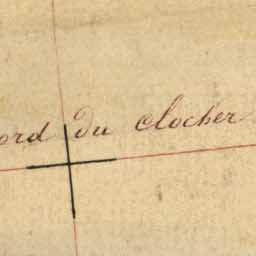 ord du clocher